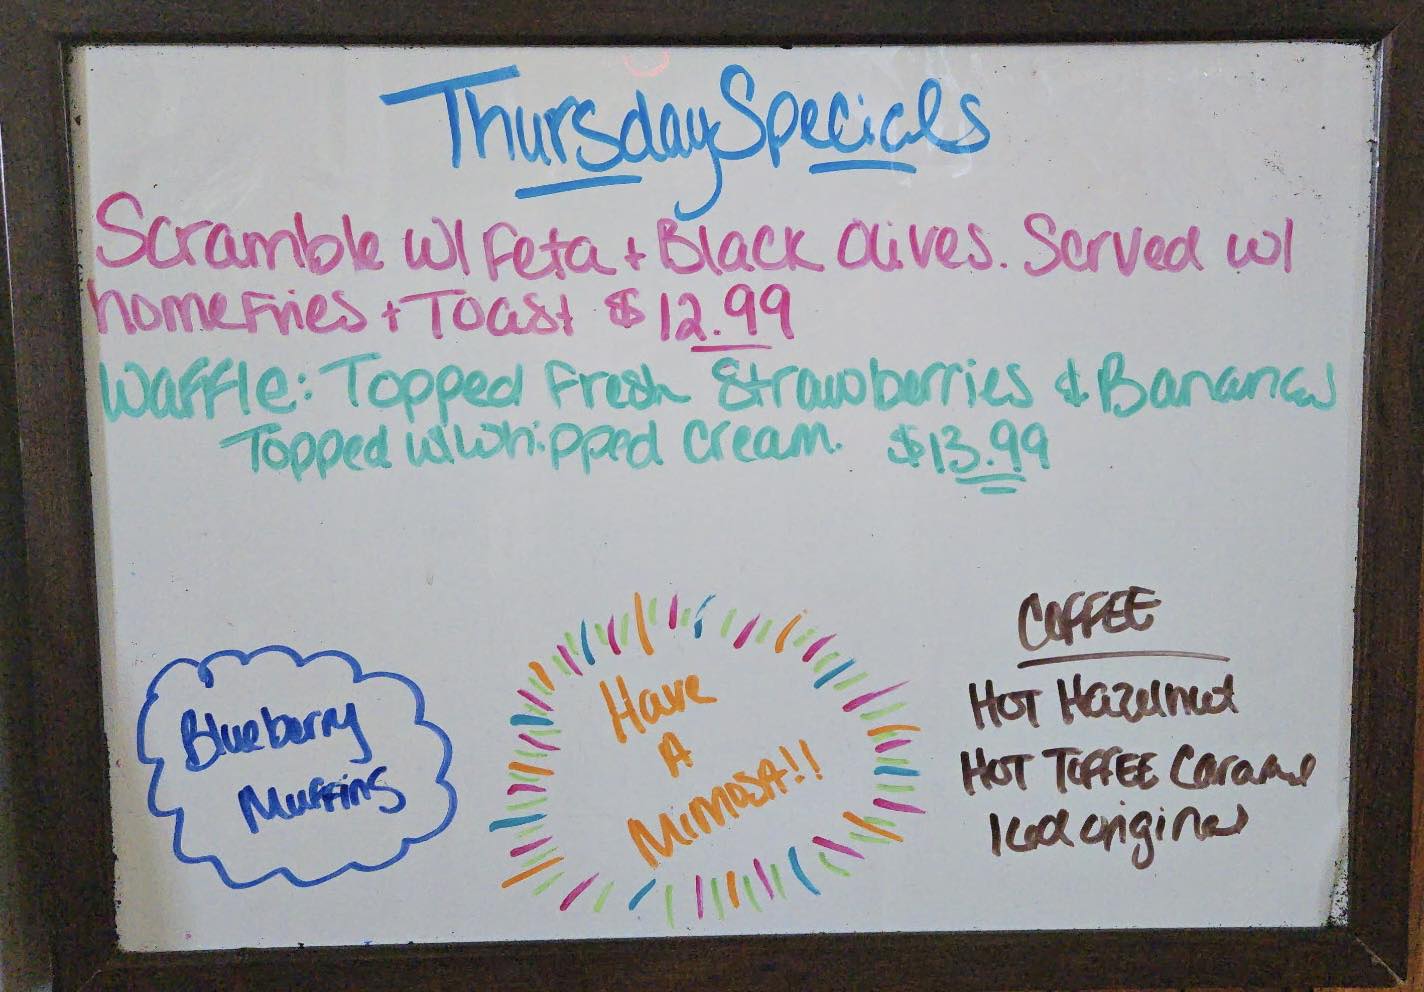 Thursday Specials
Scramble w/ Feta + Black Olives. Served w/
homefries + Toast $12.99
Waffle: Topped Fresh Strawberries & Bananas
Topped w/ Whipped Cream. $13.99
Blueberry
Muffins
Have
A
Mimosa!!
COFFEE
HOT Hazelnut
HOT TOFFEE Caramel
Iced original